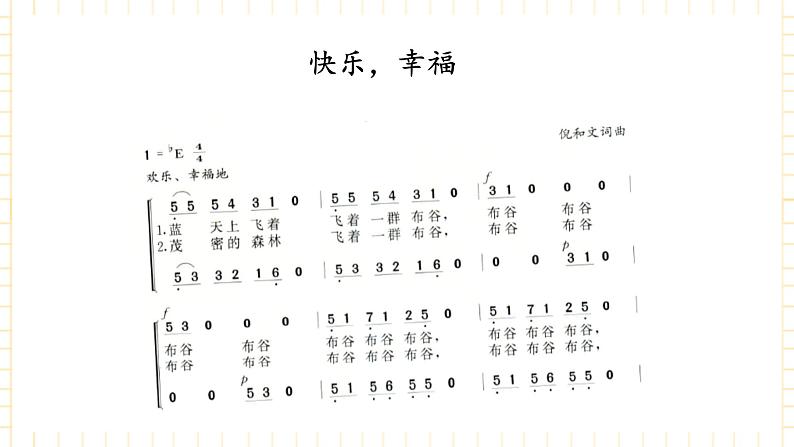 快乐，幸福
倪和文词曲
1 = ♭E 4/4
欢乐、幸福地
f
5 5 5 4 3 1 0 | 5 5 5 4 3 1 0 | 3 1 0 0 0
1.蓝 天上 飞着 飞着 一群 布谷， 布谷 布谷
2.茂 密的 森林 飞着 一群 布谷， 布谷 布谷
p
5 3 3 2 1 6 0 | 5 5 3 2 1 6 0 | 0 0 3 1 0
f
5 3 0 0 0 | 5 1 7 1 2 5 0 | 5 1 7 1 2 5 0
布谷 布谷 布谷 布谷 布谷， 布谷 布谷 布谷，
布谷 布谷 布谷 布谷 布谷， 布谷 布谷 布谷，
p
0 0 5 3 0 | 5 1 5 6 5 5 0 | 5 1 5 6 5 5 0